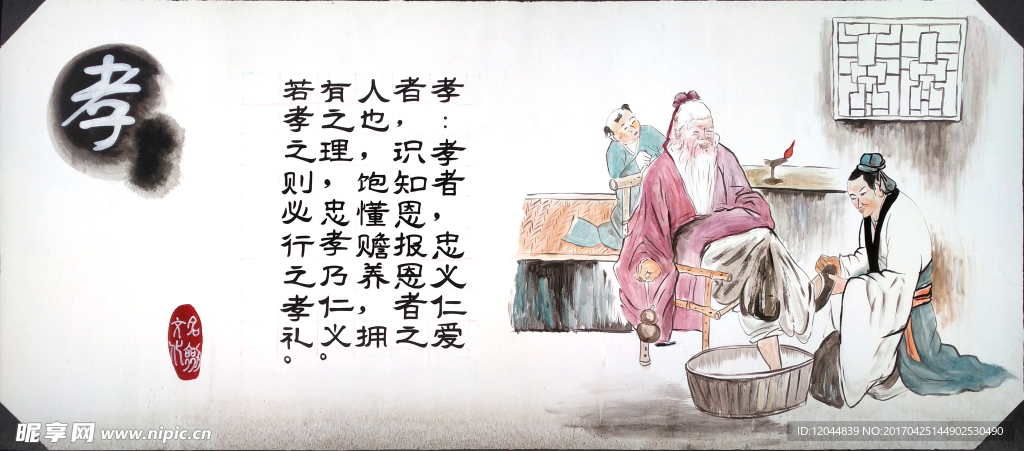 孝
孝：孝者，忠义仁爱
者，识知恩报恩者之
人也，饱懂赡养，拥
有之理，忠孝乃仁义。
若孝之则必行之孝礼。
名劍
文化
昵享网 www.nipic.cn
ID:12044839 NO:20170425144902530490